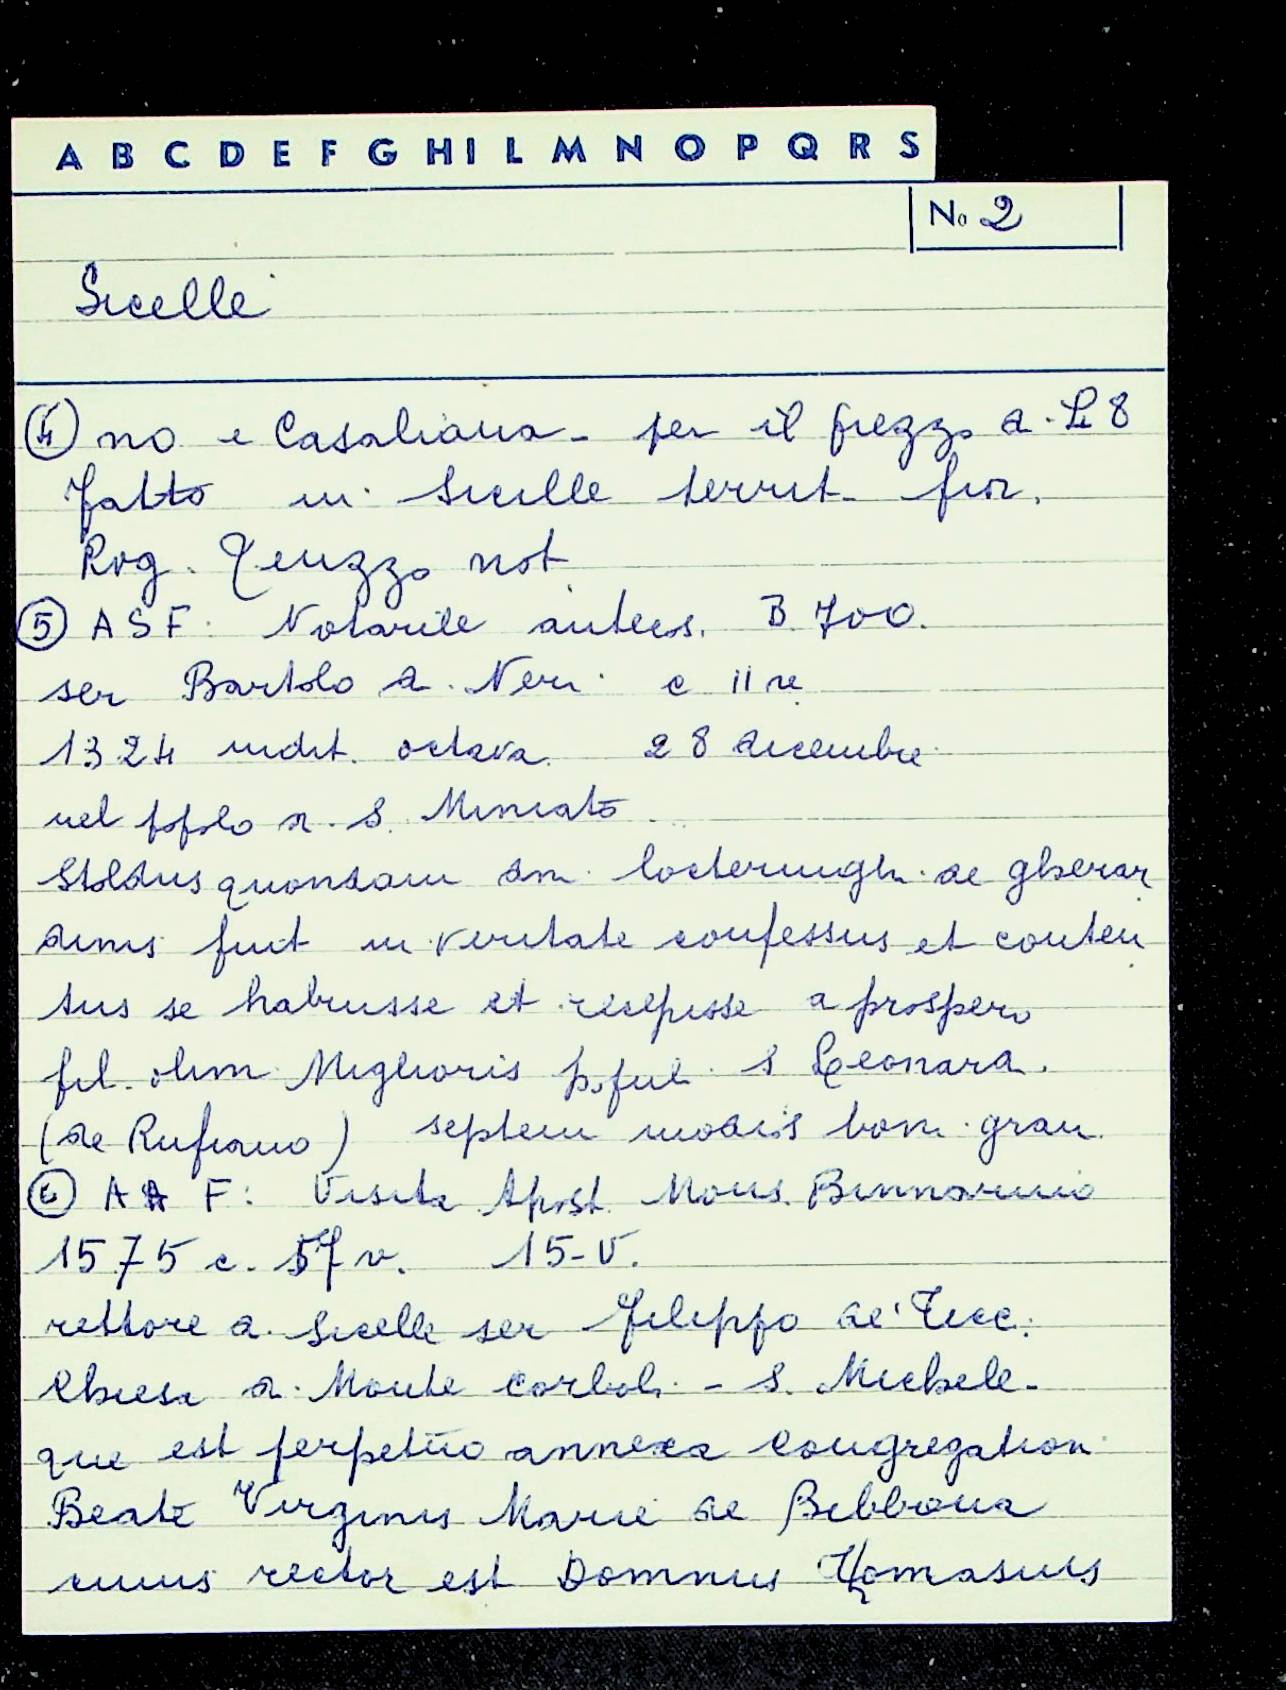 A B C D E F G H I L M N O P Q R S
No 2
Sicelle
④ no e Casaliana - per il prezzo di L 8
fatto in Sicille territ. fior.
Rog. not
⑤ ASF: Notarile antecos. B 700.
ser Bartolo di Neri c 11 re
1324 indit. octava 28 dicembre
nel popolo di S. Miniato
Stoldus quondam dni locteringhi de gherar
dinis fuit in veritate confessus et conten
tus se habuisse et recepisse a prospero
fil. olim Miglioris popul. S Leonardi.
(de Rufiano) septem modiis boni grani
⑥ AAF: Visita Apost. Mons. Binnarino
1575 c. 57 v. 15-V.
rettore di Sicelle ser Filippo de' Ticci
Chiesa di Monte Corboli - S. Michele-
que est perpetuo annexa Congregation
Beate Virginis Marie de Bibbona
cuius rector est Domnus Thomasius